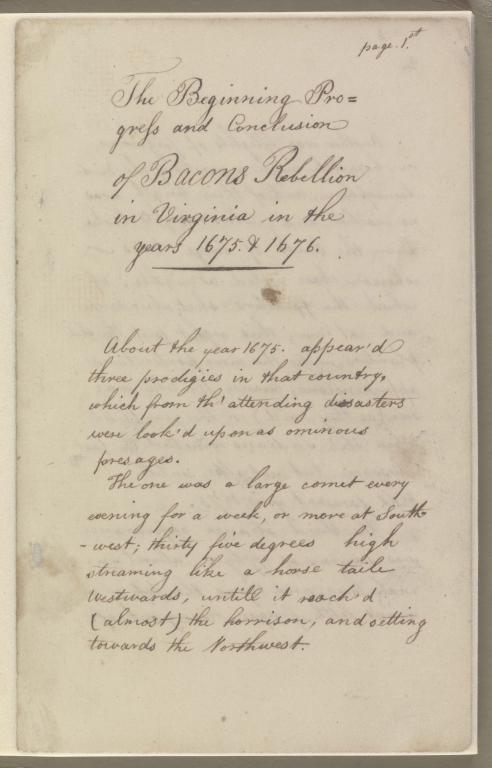 page. 1st
The Beginning Pro=
gress and Conclusion
of Bacons Rebellion
in Virginia in the
years 1675. & 1676.
About the year 1675. appear'd
three prodigies in that country,
which from th' attending disasters
were look'd upon as ominous
presages.
The one was a large comet every
evening for a week, or more at South
-west; thirty five degrees high
streaming like a horse taile
westwards, untill it reach'd
(almost) the horrison, and setting
towards the Northwest.